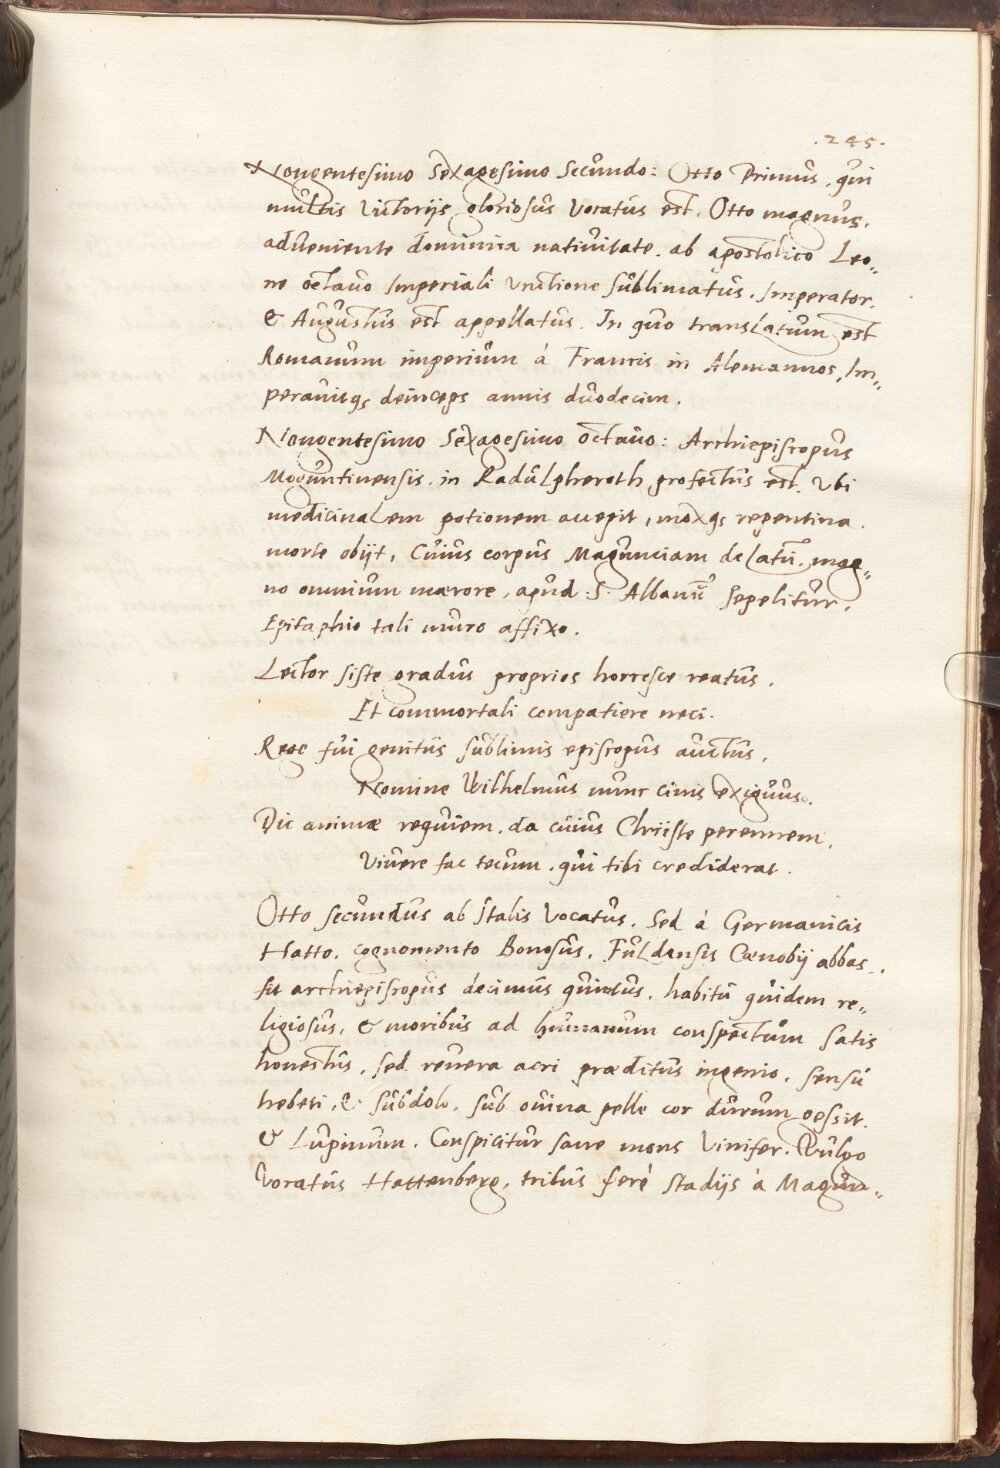 .245.
Nongentesimo Sexagesimo Secundo: Otto Primus, qui
multis Victorijs gloriosus vocatus est, Otto magnus,
adveniente dominica nativitate, ab apostolico Leo„
ne octavo Imperiali Unctione sublimatus, Imperator,
& Augustus est appellatus. In quo translatum est
Romanum imperium à Francis in Alemannos, Im„
peravitqs deinceps annis duodecim.
Nongentesimo Sexagesimo octavo: Archiepiscopus
Moguntinensis, in Radulpheroth profectus est, Ubi
medicinalem potionem accepit, moxqs repentina
morte obijt, Cuius corpus Magunciam delatū, mag„
no omnium mærore, apud .S. Albanū sepelitur,
Epitaphio tali muro affixo.
Lector siste gradus proprios horresce reatus,
Et commortali compatiere neci.
Rege fui genitus sublimis episcopus auctus,
Nomine Wilhelmus nunc cinis exiguus.
Dic animæ requiem, da cuius Christe perennem,
Vivere fac tecum, qui tibi crediderat.
Otto secundus ab Italis vocatus, Sed à Germanicis
Hatto, cognomento Bonosus, Fuldensis Cœnobij abbas,
fit archiepiscopus decimus quintus, habitu quidem re„
ligiosus, & moribus ad humanum conspectum satis
honestus, sed revera acri præditus ingenio, sensu
hebeti, & subdolo, sub ovina pelle cor durum gessit,
& Lupinum. Conspicitur sane mons Vinifer, Vulgo
Vocatus Hattenberg, tribus ferè stadijs à Magun„